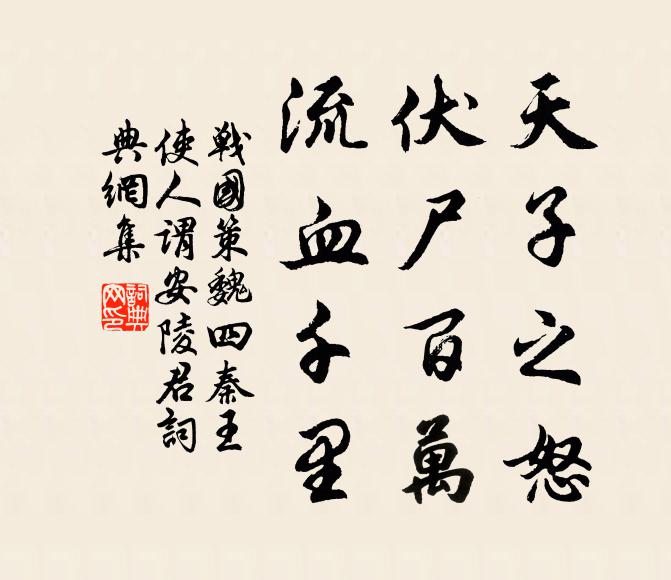 天子之怒
伏尸百萬
流血千里
戰國策魏四秦王
使人謂安陵君詞
典網集
詞典
网印